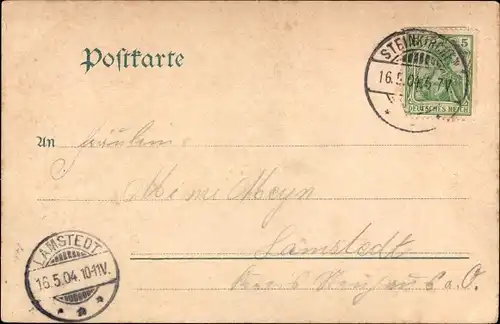 Postkarte
STEINKIRCHEN
16.5.04.6-7N.
5
DEUTSCHES REICH
An Fräulein
Meyn
Lamstedt
Kreis Neuhaus a.O.
LAMSTEDT
16.5.04.10-11V.